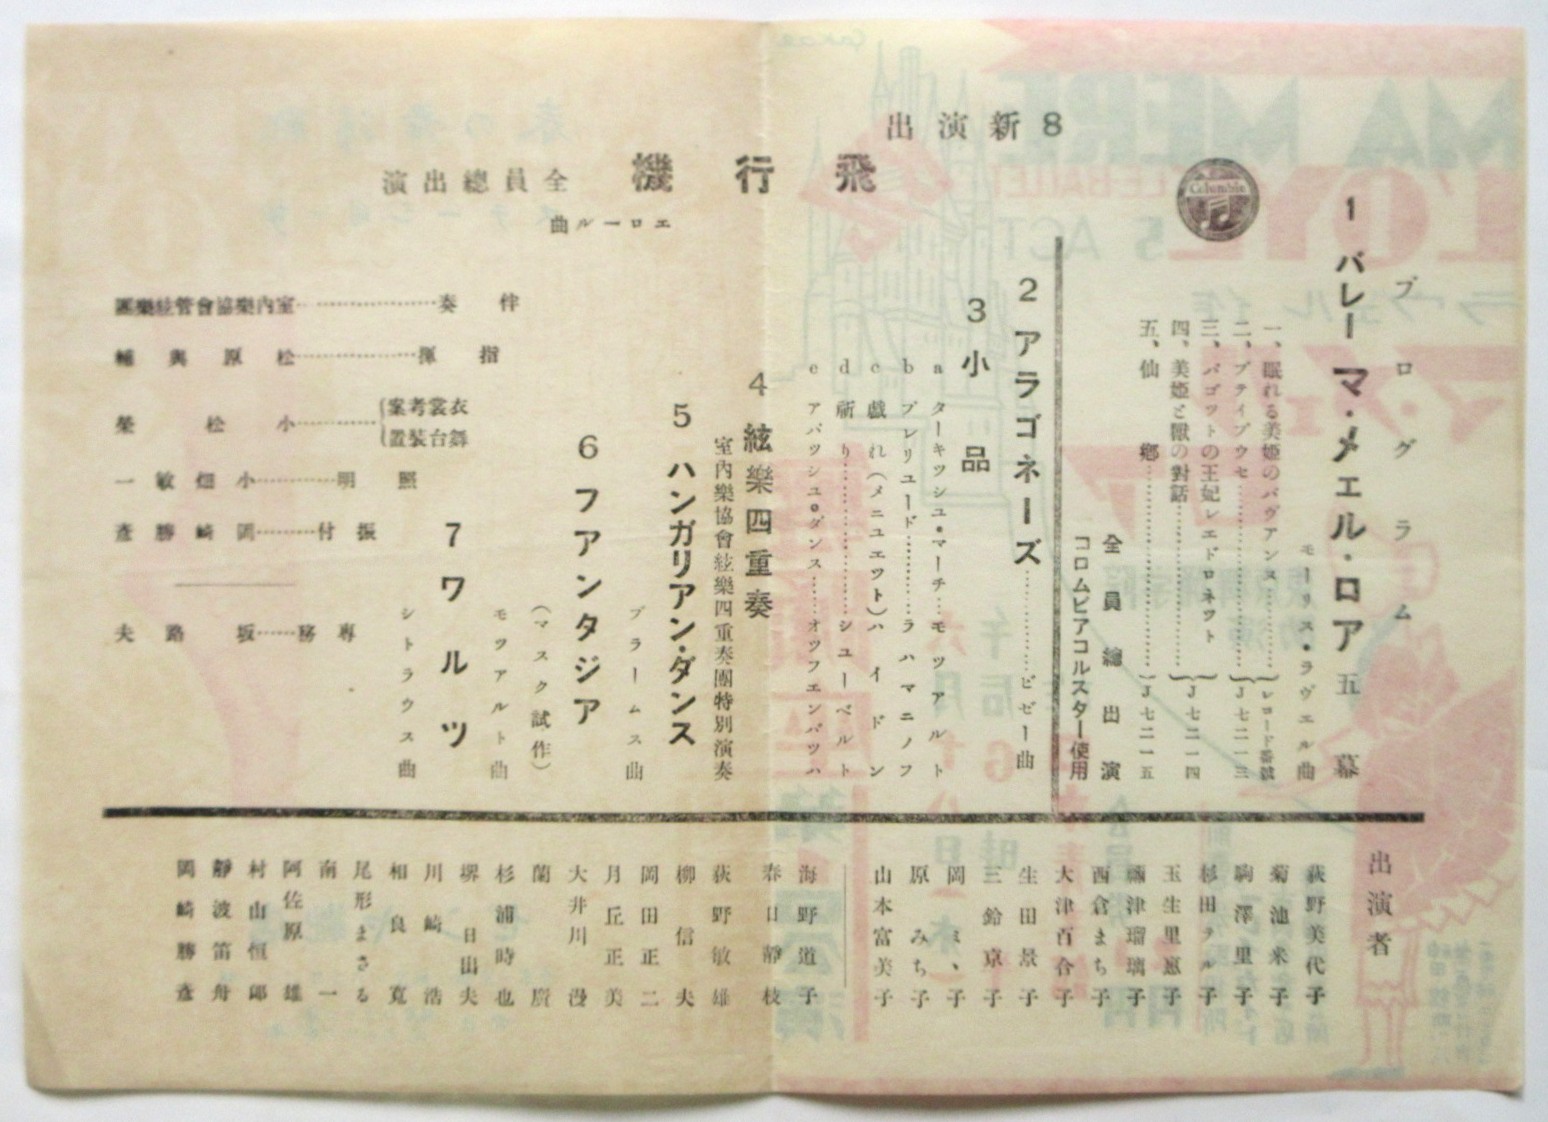 プログラム
1 バレー マ・メエル・ロア 五幕
モーリス・ラヴエル曲
一、眠れる美姫のパヴアンヌ
二、プテイプウセ
三、パゴツトの王妃レエドロネツト
四、美姫と獸の對話
五、仙鄕
レコード番號
J七二一三
J七二一四
J七二一五
全員總出演
コロムビアコルスター使用
Columbia
2 アラゴネーズ…………ビゼー曲
3 小品
a ターキツシユ・マーチ…モツアルト
b プレリユード………ラハマニノフ
c 戯れ(メニユエツト)ハイドン
d 祈り……………シユーベルト
e アパツシユ・ダンス……オツフエンバツハ
4 絃樂四重奏
室内樂協會絃樂四重奏團特別演奏
5 ハンガリアン・ダンス
ブラームス曲
6 フアンタジア
(マスク試作)
モツアルト曲
7 ワルツ
シトラウス曲
8 新演出
飛行機 全員總出演
エロール曲
伴奏…………室内樂協會管絃樂團
指揮…………松原與輔
衣裳考案
舞台裝置…………小松榮
照明…………小畑敏一
振付………岡崎勝彥
專務……坂路夫
出演者
荻野美代子
菊池米子
駒澤里子
杉田テル子
玉生里惠子
彌津瑠璃子
西倉まち子
大津百合子
生田景子
三鈴京子
岡ミヽ子
原みち子
山本富美子
海野道子
春日靜枝
荻野敏雄
柳信夫
岡田正二
月丘正美
大井川漫
蘭廣
杉浦時也
堺日出夫
川崎浩
相良寬
尾形まさる
南一
阿佐原雄
村山恒郎
靜波笛舟
岡崎勝彥